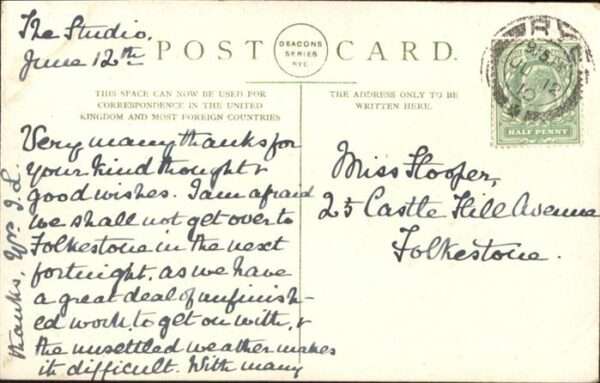 The Studio,
June 12th
POST CARD.
DEACONS
SERIES
RYE.
THIS SPACE CAN NOW BE USED FOR
CORRESPONDENCE IN THE UNITED
KINGDOM AND MOST FOREIGN COUNTRIES
THE ADDRESS ONLY TO BE
WRITTEN HERE.
RYE
HALF PENNY
Very many thanks for
your kind thought &
good wishes. I am afraid
we shall not get over to
Folkestone in the next
fortnight, as we have
a great deal of unfinish-
ed work, to get on with, &
the unsettled weather makes
it difficult. With many
thanks,
Miss Hooper,
25 Castle Hill Avenue
Folkestone.